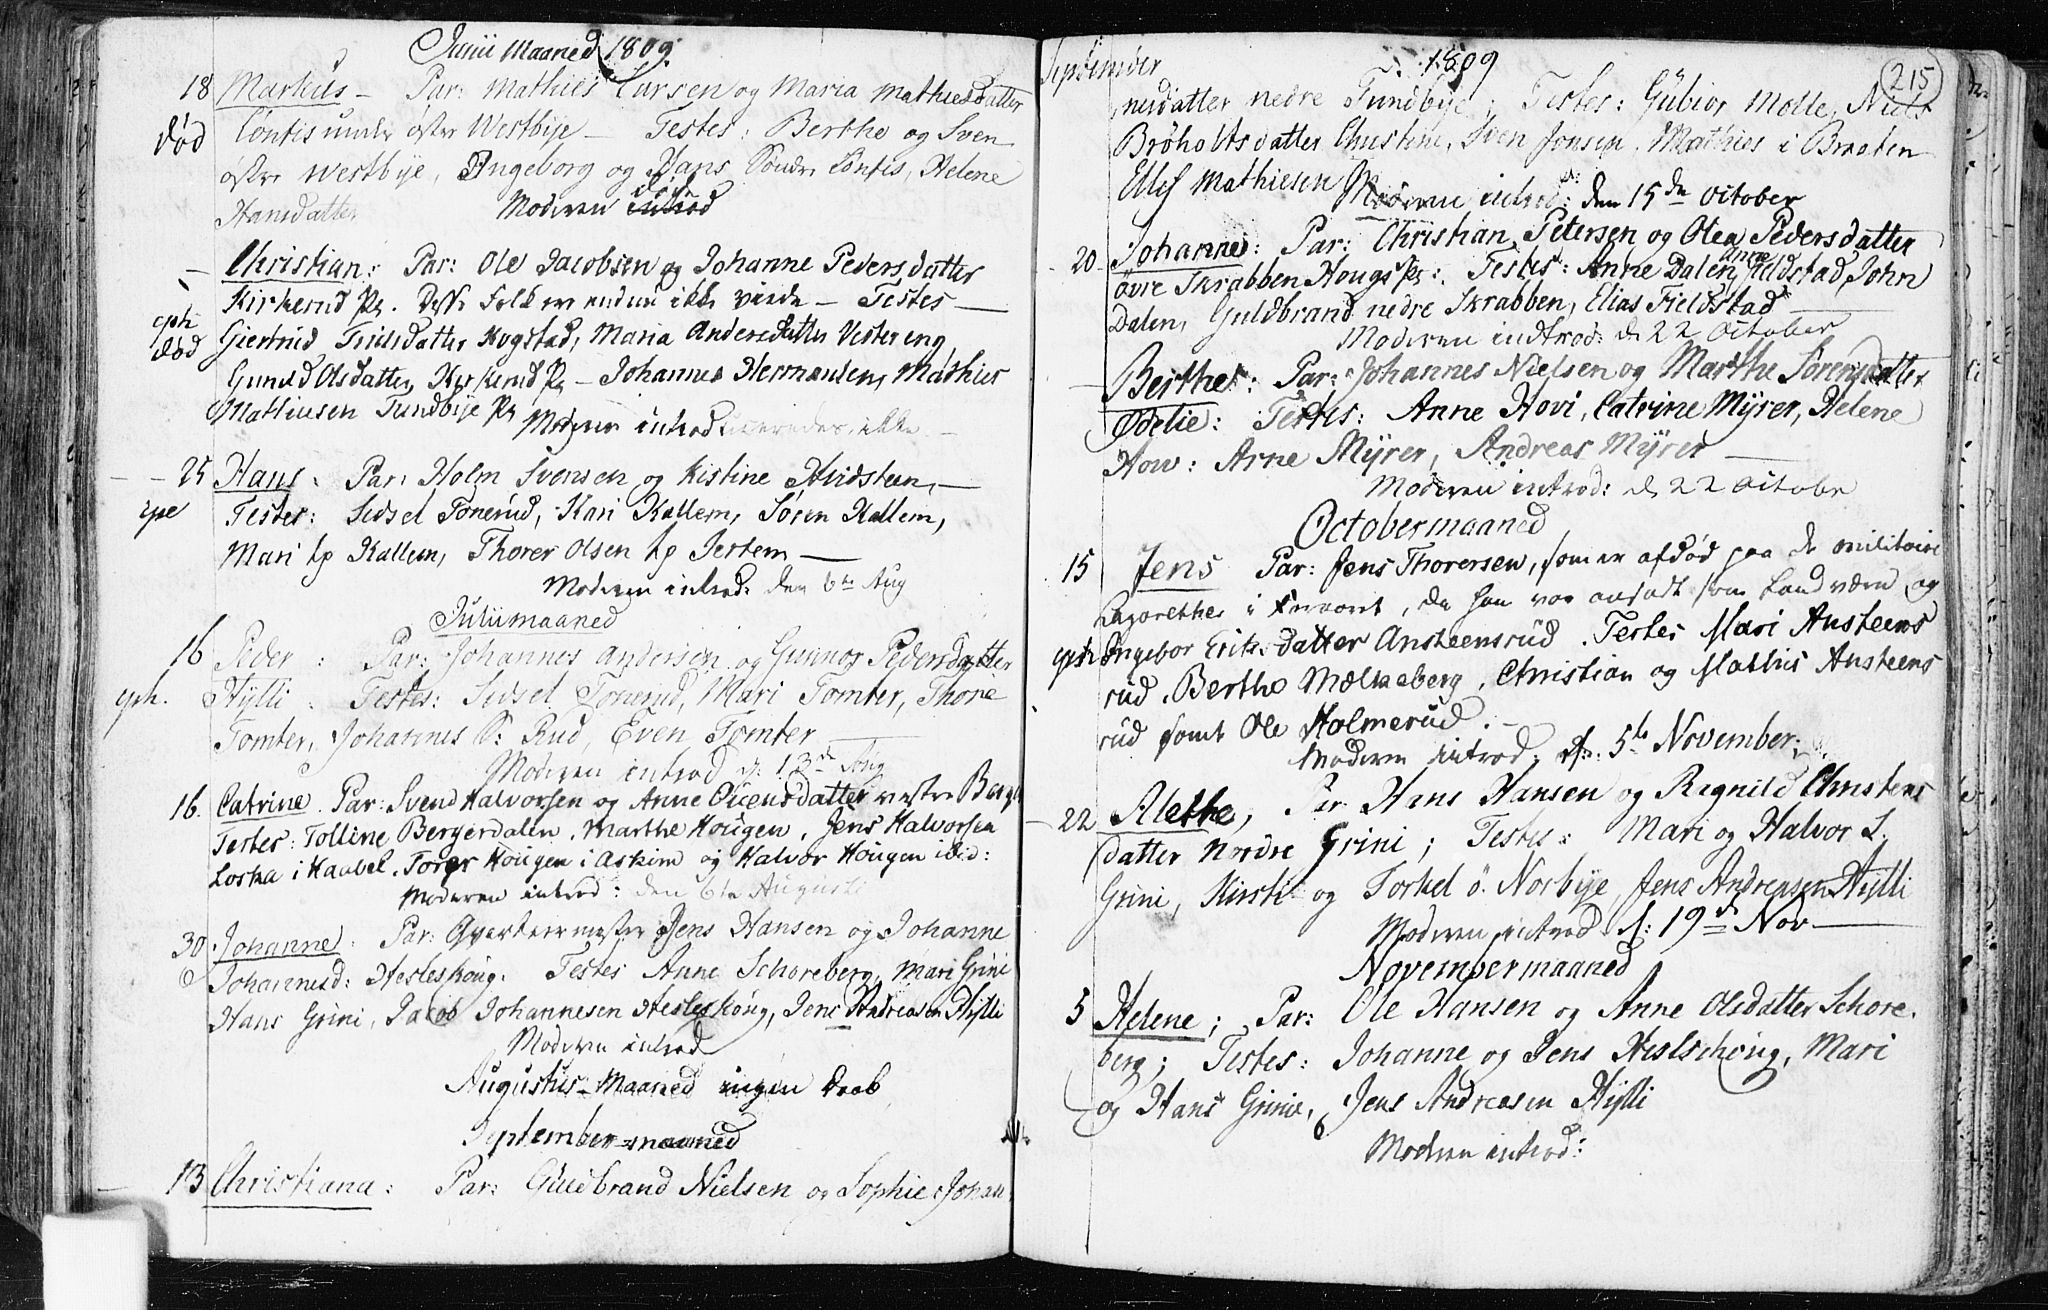 Junii Maaned 1809.
18 Markus – Par: Mathies Larsen og Maria Mathiesdatter
død Contis under øster Westbije – Testes: Berthe og Sven
østre Westbije, Ingeborg og Hans Søndre Contis, Helene
Hansdatter Moderen introd
– Christian: Par: Ole Jacobsen og Johanne Pedersdatter
Kirkerud Pp. Disse Folk er endnu ikke viede – Testes –
eph død Giertrud Trulsdatter Kogstad, Maria Andersdatter Vestereng,
Guneld Olsdatter Kirkerud Pp – Johannes Hermansen, Mathies
Mathiesen Tundbije Pp Moderen introduceredes ikke –
25 Hans. Par: Holm Svensen og Kistine Hvidsteen, –
Testes: Sidsel Tonerud, Kari Kallem, Søren Kallem,
Mari Kallem, Thorer Olsen Jertem –
Moderen introd: den 6te Aug
Julii maaned
16 Peder : Par: Johannes Andersen og Gunnor Pedersdatter
eph. Hylli : Testes: Sidsel Tonerud, Mari Tomter, Thore
Tomter, Johannes S: Rud, Even Tomter
Moderen introd d: 13de Aug
16. Catrine. Par: Svend Halvorsen og Anne Evensdatter vestre Berg
Testes: Tolline Bergerdalen. Marthe Hougen. Jens Halvorsen
Loska i Haabel. Torer Hougen i Askim og Halvor Hougen ibid:
Moderen introd: den 6te Augusti
30 Johanne: Par: Qvarteermester Jens Hansen og Johanne
Johannesd: Hesleskoug. Testes Anne Schoreberg, Mari Grini
Hans Grini, Jacob Johannesen Hesleskoug, Jens Andreasen Hylli
Moderen introd
Augustus-Maaned ingen Daab
September-maaned
13 Christiana: Par: Gudbrand Nielsen og Sophie Johan
September 1809 215
nesdatter nedre Tundbije; Testes: Gubior Molle, Niels
Brøholts datter Christine, Sven Jonsen. Mathies i Braaten
Ellef Mathiesen Moderen introd: den 15de October
20 Johanne: Par: Christian Petersen og Olea Pedersdatter
øvre Skrabben Hougs Pr: Testes: Anne Dalen, Anne Fieldstad, John
Dalen, Guldbrand nedre Skrabben, Elias Fieldstad
Moderen indtrod: d 22 October
– Berthe: Par: Johannes Nielsen og Marthe Sørensdatter
Ødelie: Testes: Anne Hovi, Catrine Myrer, Helene
How: Arne Myrer, Andreas Myrer –
Moderen introd: d 22 Octobr
Octobermaaned
15 Jens Par: Jens Thorersen, som er afdød paa de militaire
Lazarether i , da han var ansadt som Landværn, og
eph Ingebor Erichsdatter Ansteensrud. Testes Mari Ansteens
rud. Berthe Mælkeberg. Christian og Mathis Ansteens
rud samt Ole Holmerud. –
Moderen introd. d: 5te November.
22 Alethe, Par Hans Hansen og Ragnild Christens
datter Nordre Grini; Testes: Mari og Halvor L.
Grini, Kirsti og Torkel ö. Norbye, Jens Andreasen Hylli
Moderen introd d: 19de Nov –
Novembermaaned
5 Helene; Par: Ole Hansen og Anne Olsdatter Schore
berg; Testes: Johanne og Jens Heslschoug, Mari
og Hans Grinie, Jens Andreasen Hylli
Moderen introd: